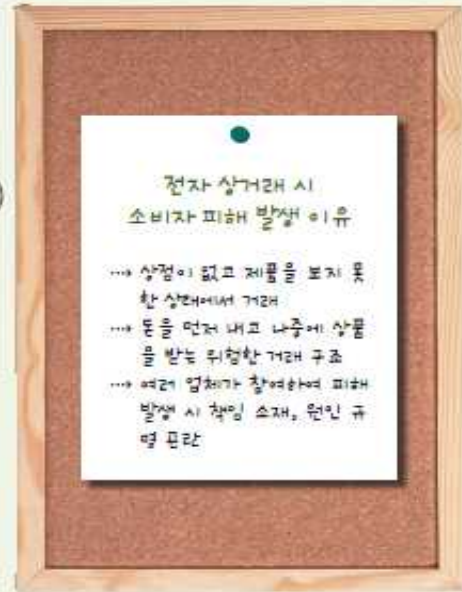 전자 상거래 시
소비자 피해 발생 이유
···→ 상점이 없고 제품을 보지 못
한 상태에서 거래
···→ 돈을 먼저 내고 나중에 상품
을 받는 위험한 거래 구조
···→ 여러 업체가 참여하여 피해
발생 시 책임 소재, 원인 규
명 곤란